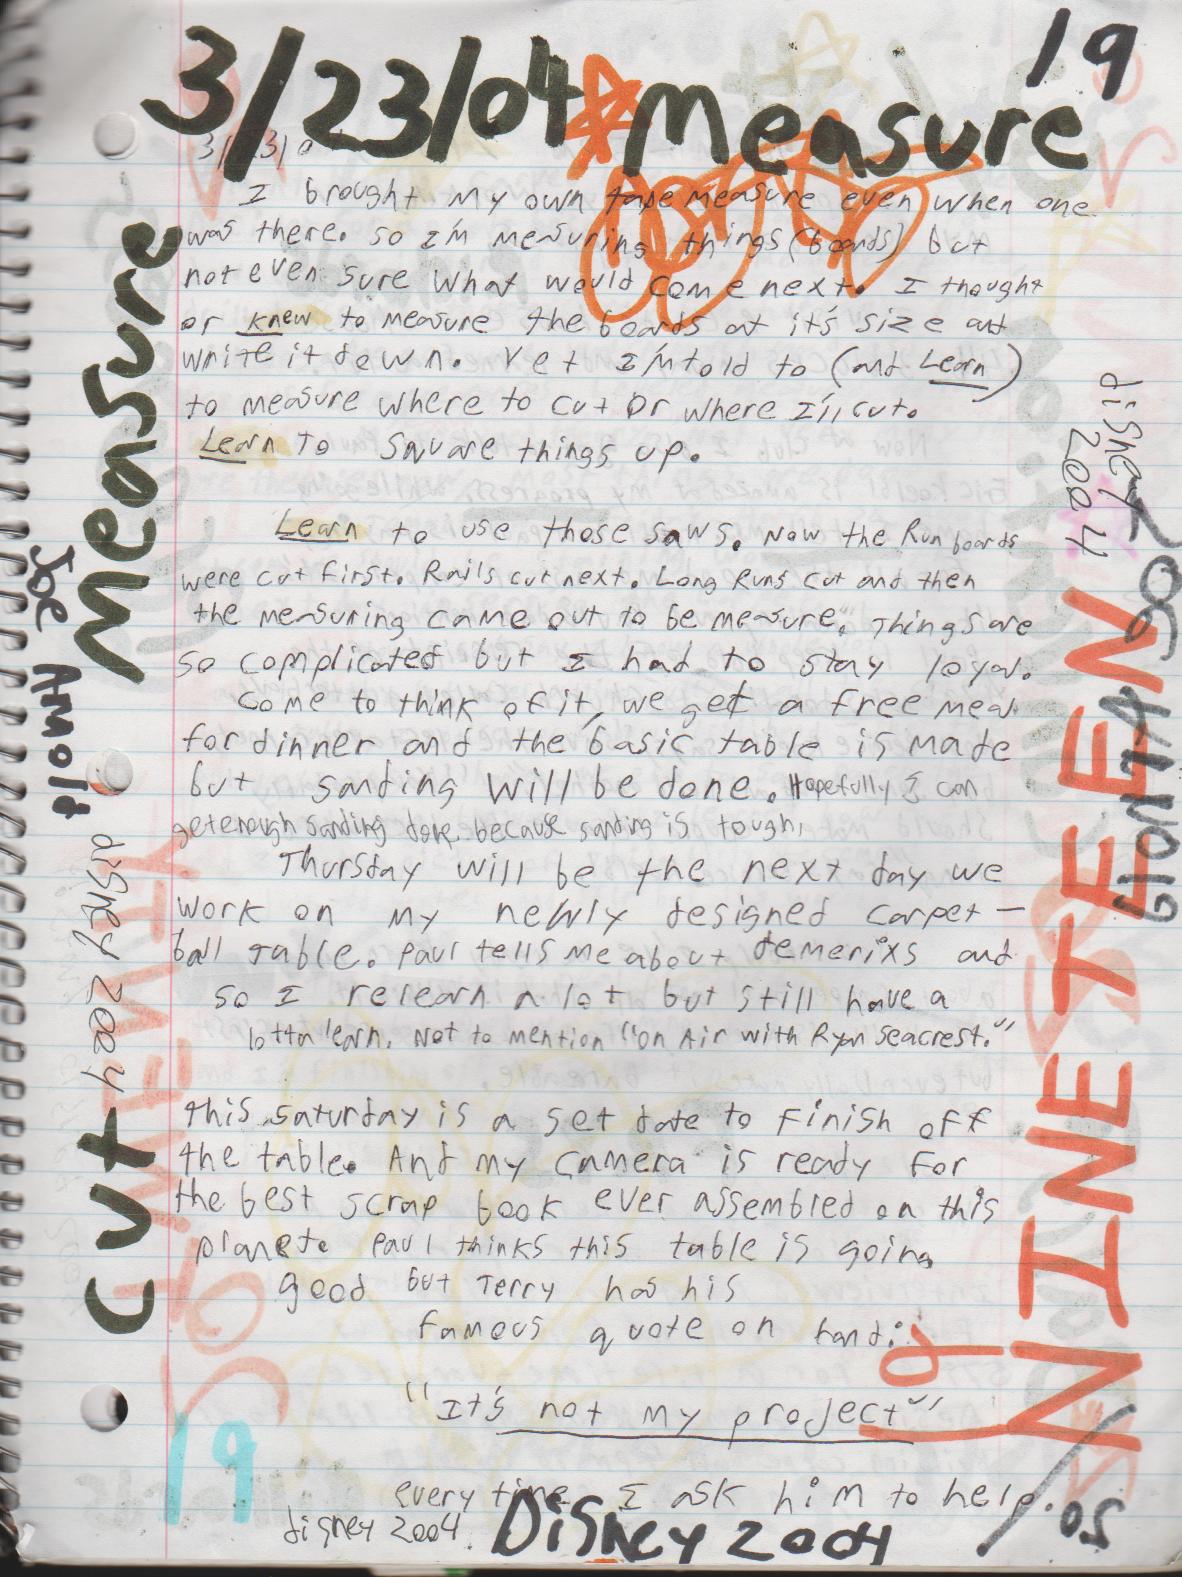 19
3/23/04 Measure
3/23/0
I brought my own tape measure even when one
was there. so I'm measuring things (boards) but
not even sure what would come next. I thought
or knew to measure the boards at it's size and
write it down. Yet I'm told to (and Learn)
to measure where to cut or where I'll cut.
Learn to square things up.
Learn to use those saws. Now the Run boards
were cut first. Rails cut next. Long Runs cut and then
the measuring came out to be measure". Things are
so complicated but I had to stay loyal.
Come to think of it, we get a free meal
for dinner and the basic table is made
but sanding will be done. Hopefully I can
get enough sanding done. because sanding is tough.
Thursday will be the next day we
work on my newly designed carpet-
ball table. Paul tells me about demerixs and
so I relearn a lot but still have a
lotta learn. Not to mention "On Air with Ryan Seacrest."
this saturday is a set date to finish off
the table. And my camera is ready for
the best scrap book ever assembled on this
planet. Paul thinks this table is going
good but Terry has his
famous quote on hand:
"It's not my project"
every time I ask him to help.
disney 2004. Disney 2004
Measure
Cut
Joe Amolt
disney 2004
19
disney
2004
NINETEEN
19
/05